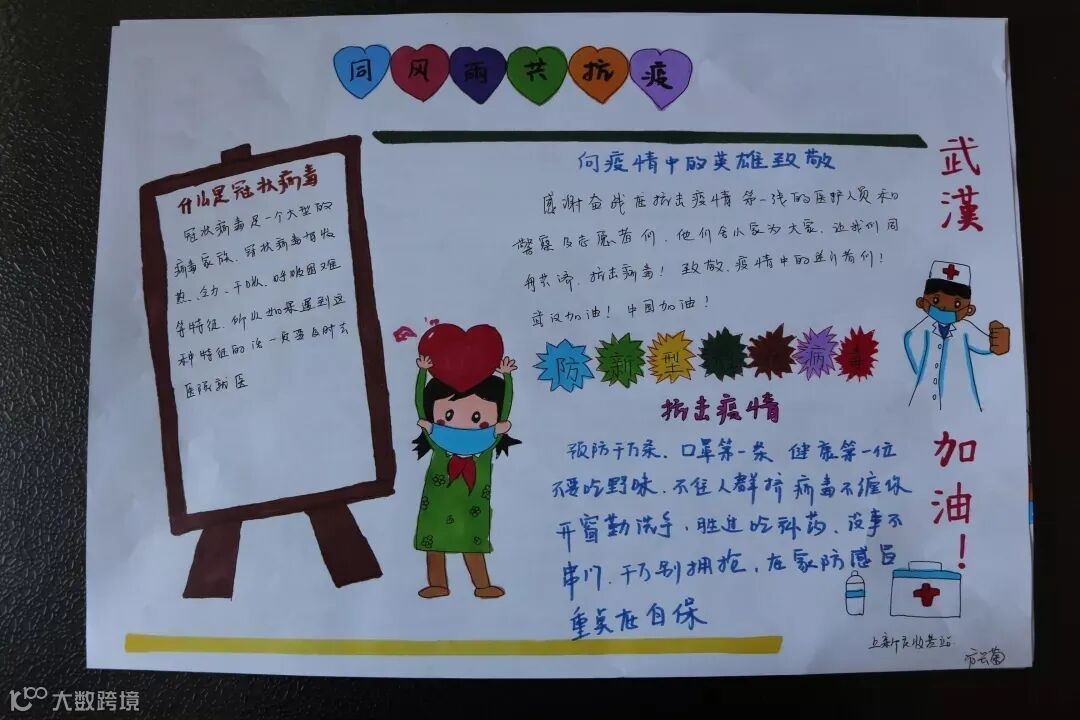 同风雨共抗疫
什么是冠状病毒
冠状病毒是一个大型的
病毒家族、冠状病毒有发
热、乏力、干咳、呼吸困难
等特征、所以如果遇到这
种特征的话一定要及时去
医院就医
向疫情中的英雄致敬
感谢奋战在抗击疫情第一线的医护人员和
警察及志愿者们、他们舍小家为大家、让我们同
舟共济、抗击病毒！致敬、疫情中的逆行者们！
武汉加油！中国加油！
防新型冠状病毒
抗击疫情
预防千万条、口罩第一条 健康第一位
不要吃野味、不住人群挤 病毒不缠你
开窗勤洗手、胜过吃补药、没事不
串门、千万别拥抱、在家防感冒
重点在自保
武漢
加油！
大数跨境